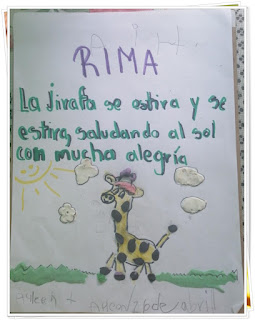 RIMA
La Jirafa se estira y se
estira, saludando al sol
con mucha alegría
abril